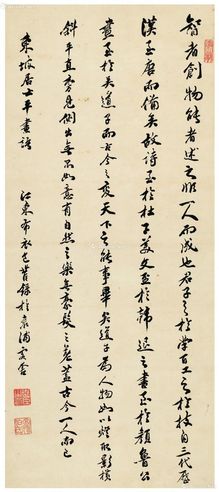 智者創物能者述之非一人而成也君子之於學百工之於技自三代歷
漢至唐而備矣故詩至於杜子美文至於韓退之書至於顏魯公
畫至於吳道子而古今之變天下之能事畢矣道子為人物如以燈取影橫
斜平直旁見側出無不如意有自然之樂無毫髮之差蓋古今一人而已
東坡居士平畫語
江東布衣包昔錄於袁浦寓舍